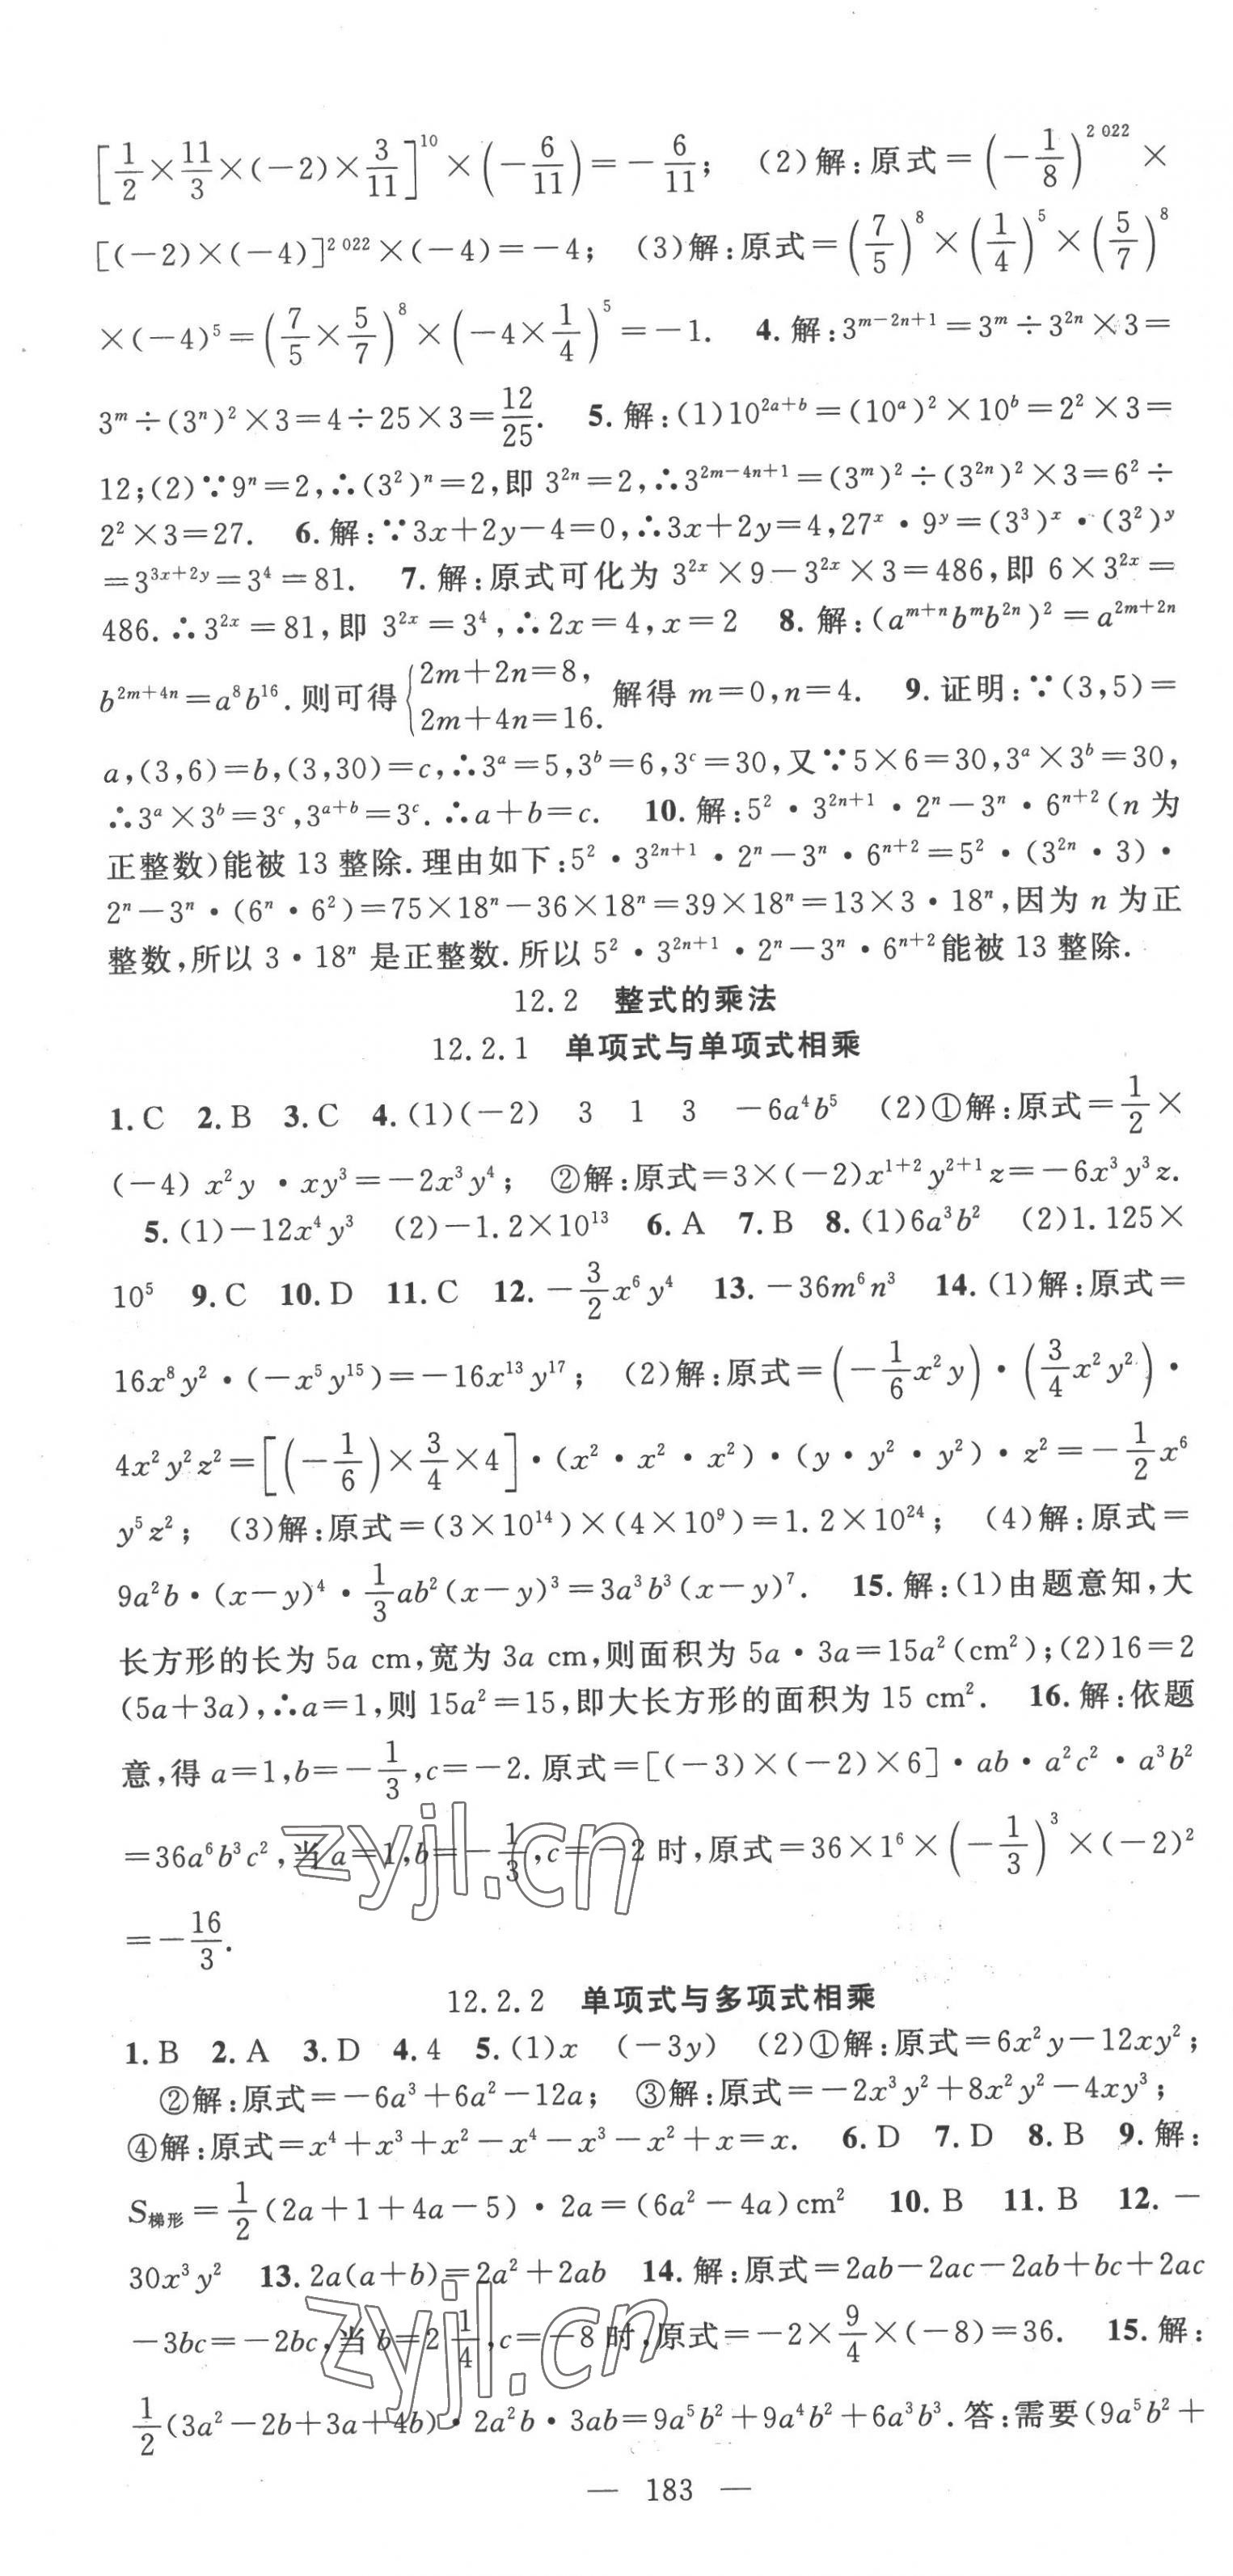 [1/2×11/3×(−2)×3/11]¹⁰×(−6/11)=−6/11; (2)解:原式=(−1/8)²⁰²²×
[(−2)×(−4)]²⁰²²×(−4)=−4; (3)解:原式=(7/5)⁸×(1/4)⁵×(5/7)⁸
×(−4)⁵=(7/5×5/7)⁸×(−4×1/4)⁵=−1. 4.解:3^(m−2n+1)=3^m÷3^(2n)×3=
3^m÷(3^n)²×3=4÷25×3=12/25. 5.解:(1)10^(2a+b)=(10^a)²×10^b=2²×3=
12;(2)∵9^n=2,∴(3²)^n=2,即 3^(2n)=2,∴3^(2m−4n+1)=(3^m)²÷(3^(2n))²×3=6²÷
2²×3=27. 6.解:∵3x+2y−4=0,∴3x+2y=4,27^x·9^y=(3³)^x·(3²)^y
=3^(3x+2y)=3⁴=81. 7.解:原式可化为 3^(2x)×9−3^(2x)×3=486,即 6×3^(2x)=
486.∴3^(2x)=81,即 3^(2x)=3⁴,∴2x=4,x=2 8.解:(a^(m+n)b^m b^(2n))²=a^(2m+2n)
b^(2m+4n)=a⁸b¹⁶.则可得{2m+2n=8, 2m+4n=16. 解得 m=0,n=4. 9.证明:∵(3,5)=
a,(3,6)=b,(3,30)=c,∴3^a=5,3^b=6,3^c=30,又∵5×6=30,3^a×3^b=30,
∴3^a×3^b=3^c,3^(a+b)=3^c.∴a+b=c. 10.解:5²·3^(2n+1)·2^n−3^n·6^(n+2)(n 为
正整数)能被 13 整除.理由如下:5²·3^(2n+1)·2^n−3^n·6^(n+2)=5²·(3^(2n)·3)·
2^n−3^n·(6^n·6²)=75×18^n−36×18^n=39×18^n=13×3·18^n,因为 n 为正
整数,所以 3·18^n 是正整数.所以 5²·3^(2n+1)·2^n−3^n·6^(n+2)能被 13 整除.
12.2 整式的乘法
12.2.1 单项式与单项式相乘
1.C 2.B 3.C 4.(1)(−2) 3 1 3 −6a⁴b⁵ (2)①解:原式=1/2×
(−4) x²y·xy³=−2x³y⁴; ②解:原式=3×(−2)x^(1+2)y^(2+1)z=−6x³y³z.
5.(1)−12x⁴y³ (2)−1.2×10¹³ 6.A 7.B 8.(1)6a³b² (2)1.125×
10⁵ 9.C 10.D 11.C 12.−3/2x⁶y⁴ 13.−36m⁶n³ 14.(1)解:原式=
16x⁸y²·(−x⁵y¹⁵)=−16x¹³y¹⁷; (2)解:原式=(−1/6x²y)·(3/4x²y²)·
4x²y²z²=[(−1/6)×3/4×4]·(x²·x²·x²)·(y·y²·y²)·z²=−1/2x⁶
y⁵z²; (3)解:原式=(3×10¹⁴)×(4×10⁹)=1.2×10²⁴; (4)解:原式=
9a²b·(x−y)⁴·1/3ab²(x−y)³=3a³b³(x−y)⁷. 15.解:(1)由题意知,大
长方形的长为 5a cm,宽为 3a cm,则面积为 5a·3a=15a²(cm²);(2)16=2
(5a+3a),∴a=1,则 15a²=15,即大长方形的面积为 15 cm². 16.解:依题
意,得 a=1,b=−1/3,c=−2.原式=[(−3)×(−2)×6]·ab·a²c²·a³b²
=36a⁶b³c²,当 a=1,b=−1/3,c=−2 时,原式=36×1⁶×(−1/3)³×(−2)²
=−16/3.
zyjl.cn
12.2.2 单项式与多项式相乘
1.B 2.A 3.D 4.4 5.(1)x (−3y) (2)①解:原式=6x²y−12xy²;
②解:原式=−6a³+6a²−12a; ③解:原式=−2x³y²+8x²y²−4xy³;
④解:原式=x⁴+x³+x²−x⁴−x³−x²+x=x. 6.D 7.D 8.B 9.解:
S梯形=1/2(2a+1+4a−5)·2a=(6a²−4a)cm² 10.B 11.B 12.−
30x³y² 13.2a(a+b)=2a²+2ab 14.解:原式=2ab−2ac−2ab+bc+2ac
−3bc=−2bc,当 b=2 1/4,c=−8 时,原式=−2×9/4×(−8)=36. 15.解:
1/2(3a²−2b+3a+4b)·2a²b·3ab=9a⁵b²+9a⁴b²+6a³b³.答:需要(9a⁵b²+
zyjl.cn
— 183 —